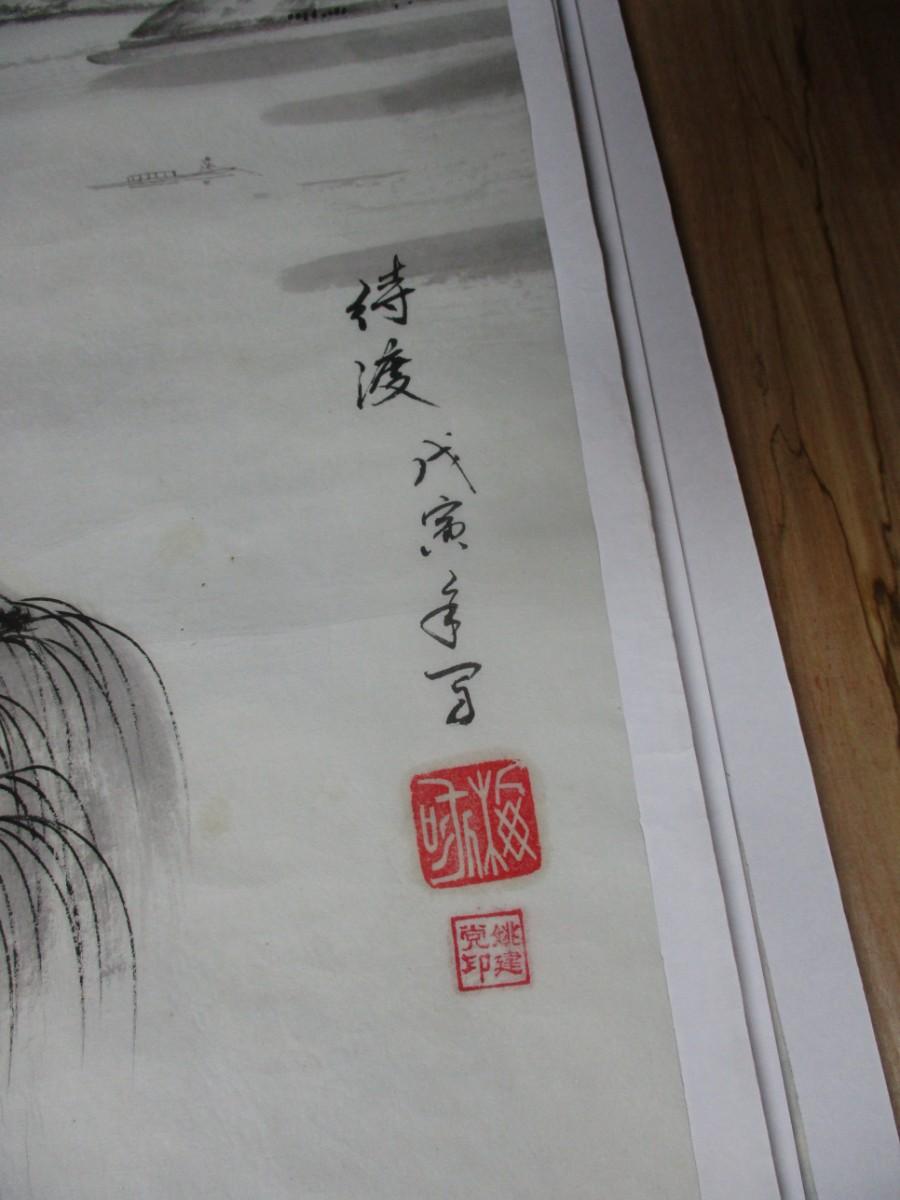 待渡
戊寅年写
姚建党印